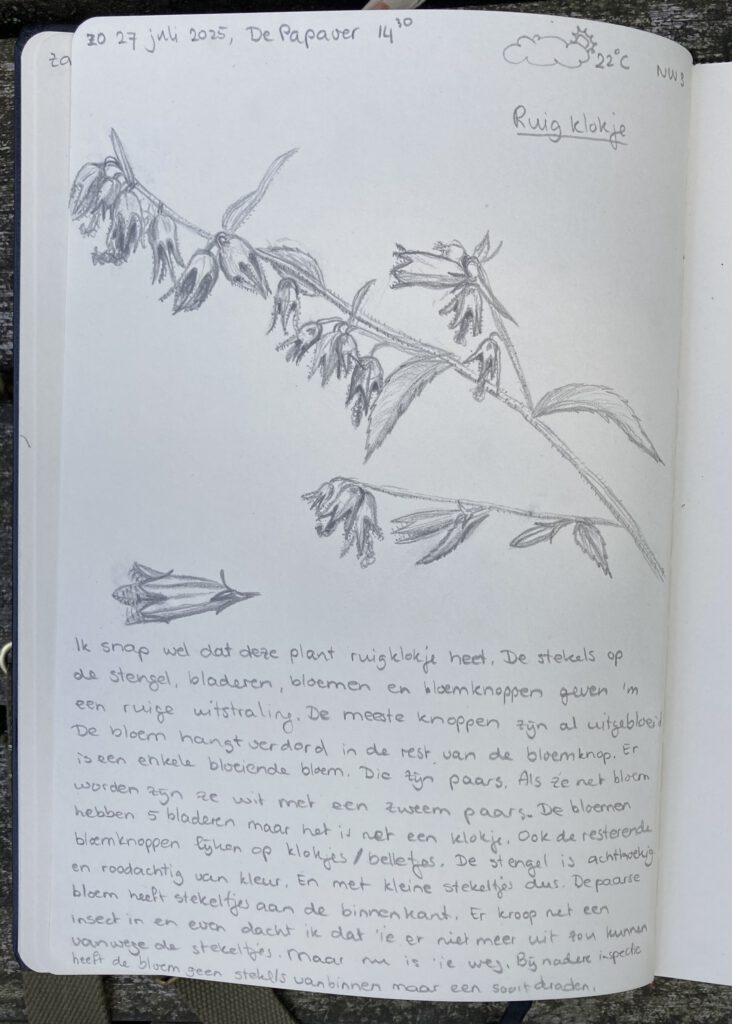 zo 27 juli 2025, De Papaver 14³⁰
22°C
NW3
za
Ruig klokje
Ik snap wel dat deze plant ruigklokje heet. De stekels op
de stengel, bladeren, bloemen en bloemknoppen geven 'm
een ruige uitstraling. De meeste knoppen zijn al uitgebloeid
De bloem hangt verdord in de rest van de bloemknop. Er
is een enkele bloeiende bloem. Die zijn paars. Als ze net bloem
worden zijn ze wit met een zweem paars. De bloemen
hebben 5 bladeren maar het is net een klokje. Ook de resterende
bloemknoppen lijken op klokjes/belletjes. De stengel is achthoekig
en roodachtig van kleur. En met kleine stekeltjes dus. De paarse
bloem heeft stekeltjes aan de binnenkant. Er kroop net een
insect in en even dacht ik dat 'ie er niet meer uit zou kunnen
vanwege de stekeltjes. Maar nu is 'ie weg. Bij nadere inspectie
heeft de bloem geen stekels vanbinnen maar een soort draden.